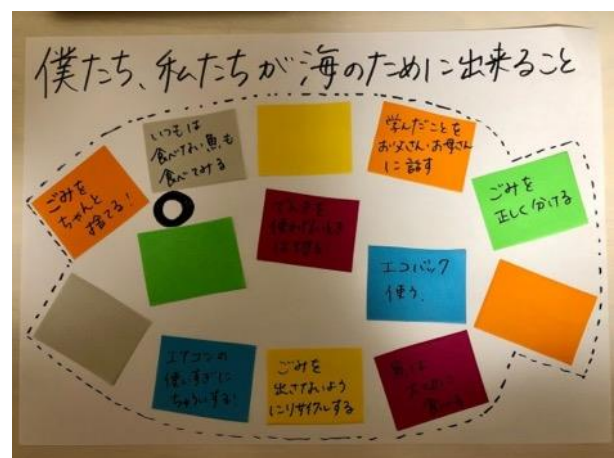 僕たち、私たちが海のために出来ること
いつもは
食べない魚も
食べてみる
学んだことを
お父さん・お母さん
に話す
ごみを
ちゃんと
捨てる!
ごみを
正しく分ける
エコバック
使う、
エアコンの
使いすぎに
ちゅういする!
ごみを
出さないよう
にリサイクルする